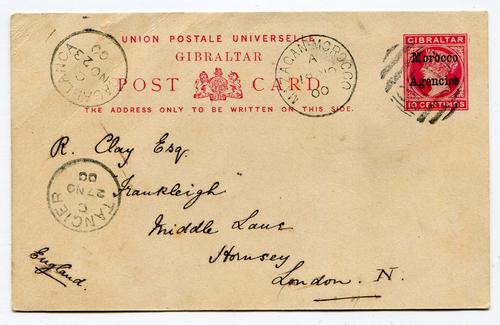 UNION POSTALE UNIVERSELLE
GIBRALTAR
POST CARD
THE ADDRESS ONLY TO BE WRITTEN ON THIS SIDE.
GIBRALTAR
Morocco
Agencies
10 CENTIMOS
CASABLANCA
C
23 NO
00
MAZAGAN-MOROCCO
A
00
TANGIER
C
27 NO
00
R. Clay Esq.
"Frankleigh"
Middle Lane
Hornsey
London. N.
England.